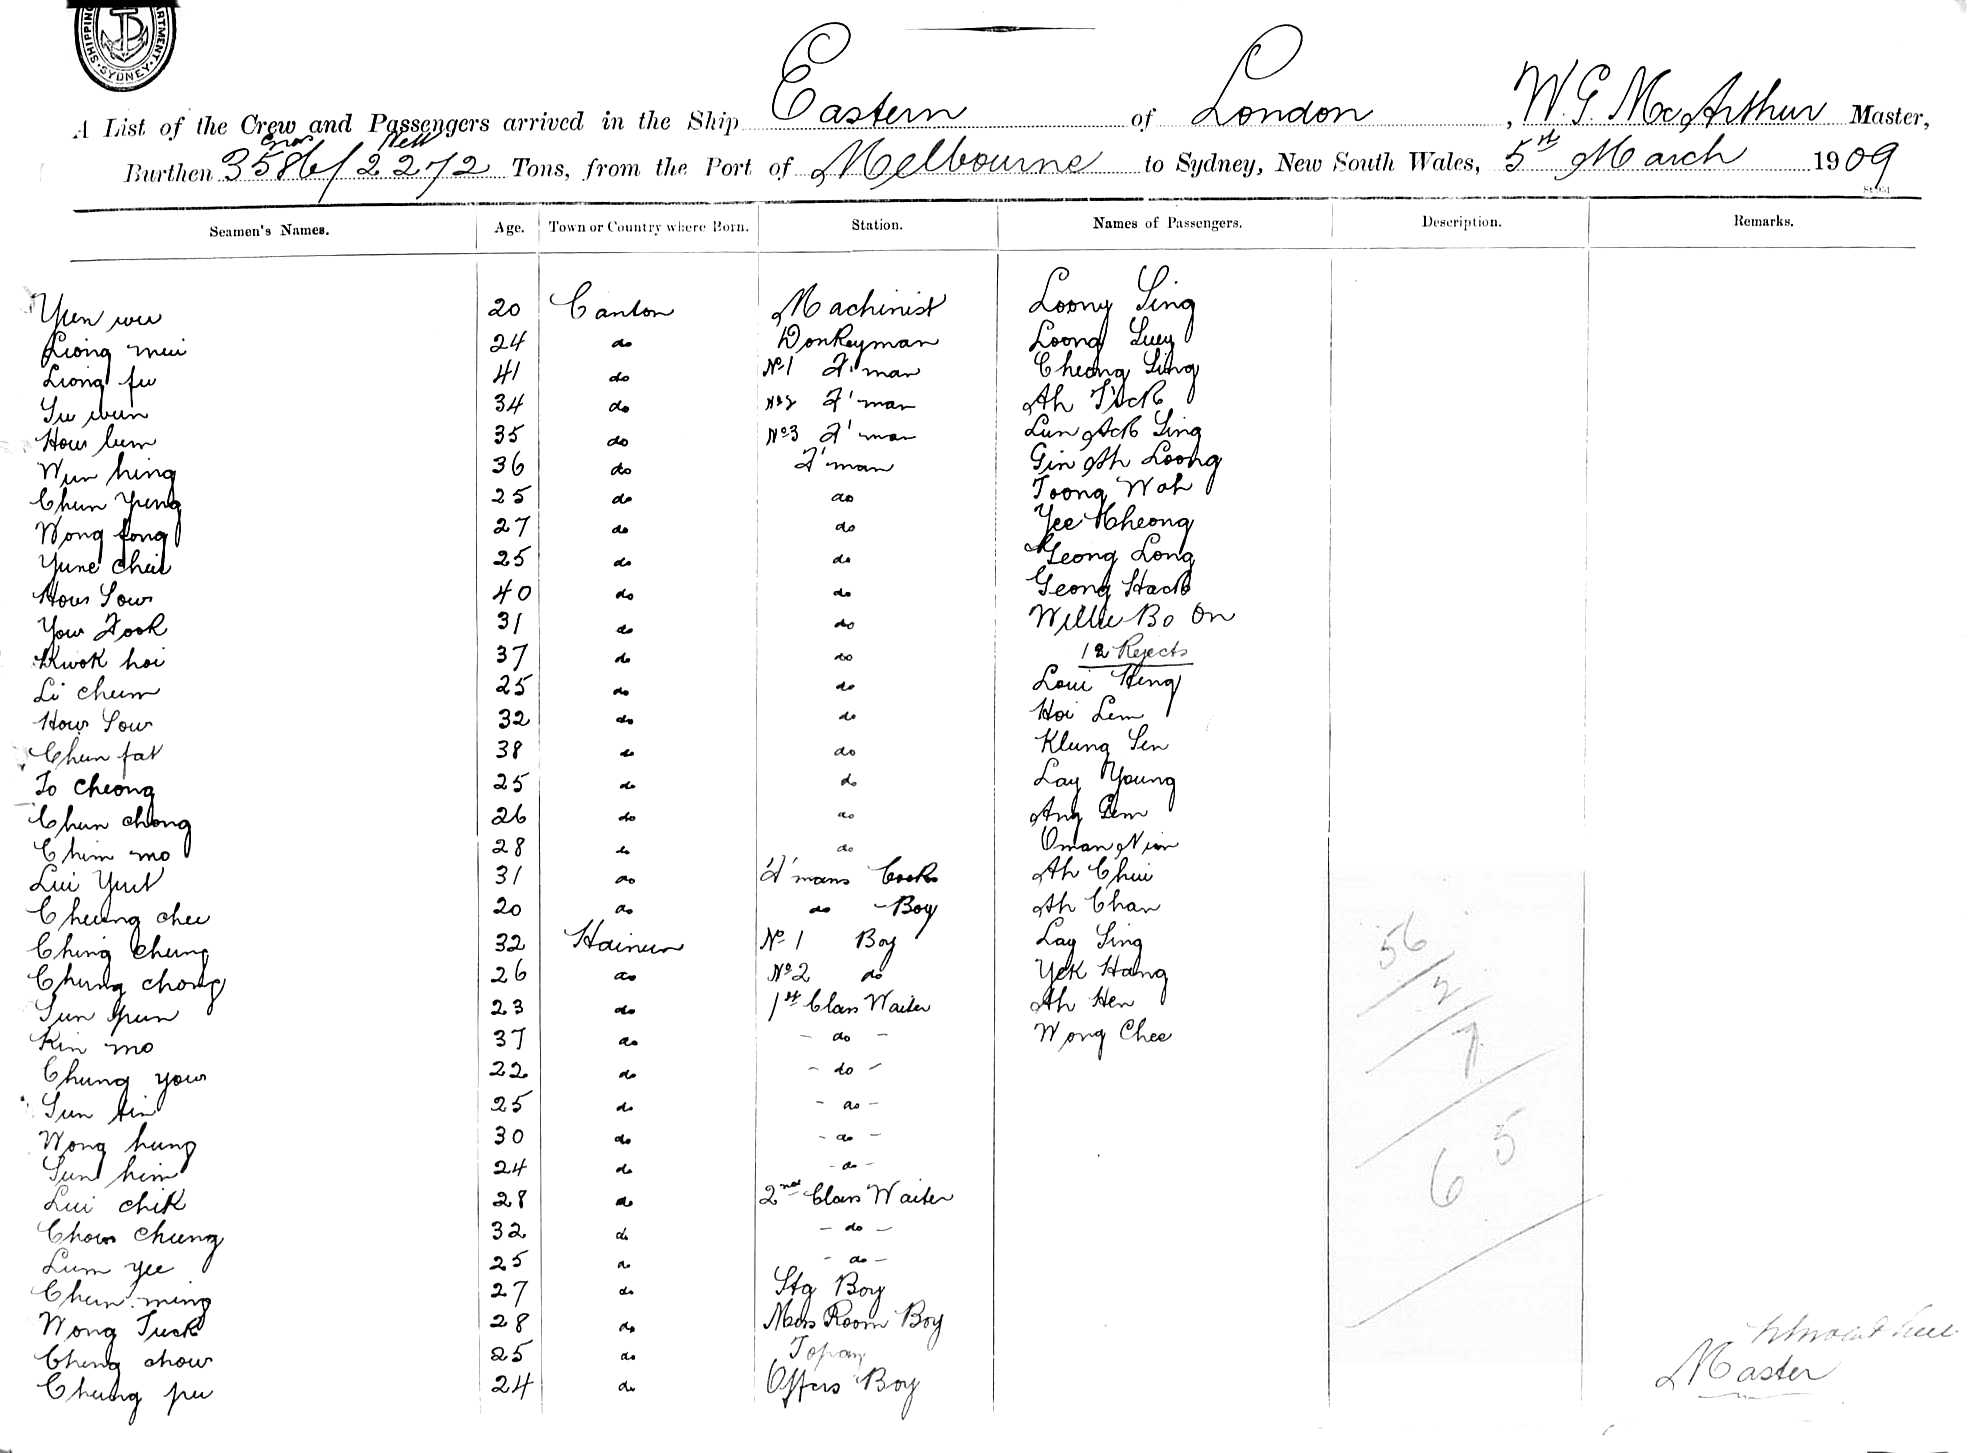 SHIPPING DEPARTMENT. SYDNEY.
A List of the Crew and Passengers arrived in the Ship Eastern of London, W. G. McArthur Master,
Gross Nett
Burthen 3586/2272 Tons, from the Port of Melbourne to Sydney, New South Wales, 5th March 1909
Seamen's Names. Age. Town or Country where Born. Station. Names of Passengers. Description. Remarks.
Yuen wu 20 Canton Machinist Loong Sing
Liong mui 24 do Donkeyman Loong Luey
Liong fu 41 do No 1 F'man Cheong Sing
Su wun 34 do No 2 F'man Ah Tuck
How lum 35 do No 3 F'man Lun Ack Sing
Wun hing 36 do F'man Gin Ah Loong
Chun Yung 25 do do Toong Wah
Wong fong 27 do do Yee Kheong
Yune chui 25 do do Geong Long
How Sow 40 do do Geong Hack
Yow Fook 31 do do Willie Bo On
Kwok hoi 37 do do 12 Rejects
Li chum 25 do do Loui Hing
How Sow 32 do do Hoi Lem
Chun fat 38 do do Klung Sen
To Cheong 25 do do Lay Young
Chun chong 26 do do Ang Lem
Chim mo 28 do do Oman Nim
Lui Yut 31 do F'mans Cook Ah Chui
Cheung chee 20 do do - Boy Ah Chan
Ching cheung 32 Hainan No 1 Boy Lay Sing
Chung chong 26 do No 2 do Yek Hang
Sun pun 23 do 1st Class Waiter Ah Hen
Kin mo 37 do - do - Wong Chee
Chung yow 22 do - do -
Sun tin 25 do - do -
Wong hung 30 do - do -
Sun him 24 do - do -
Lui chik 28 do 2nd Class Waiter
Chow Cheung 32 do - do -
Lum yee 25 do - do -
Chun ming 27 do Stg Boy
Wong Tuck 28 do Mess Room Boy
Cheng chow 25 do Topay
Cheung pu 24 do Offers Boy
56
2
7
65
Master